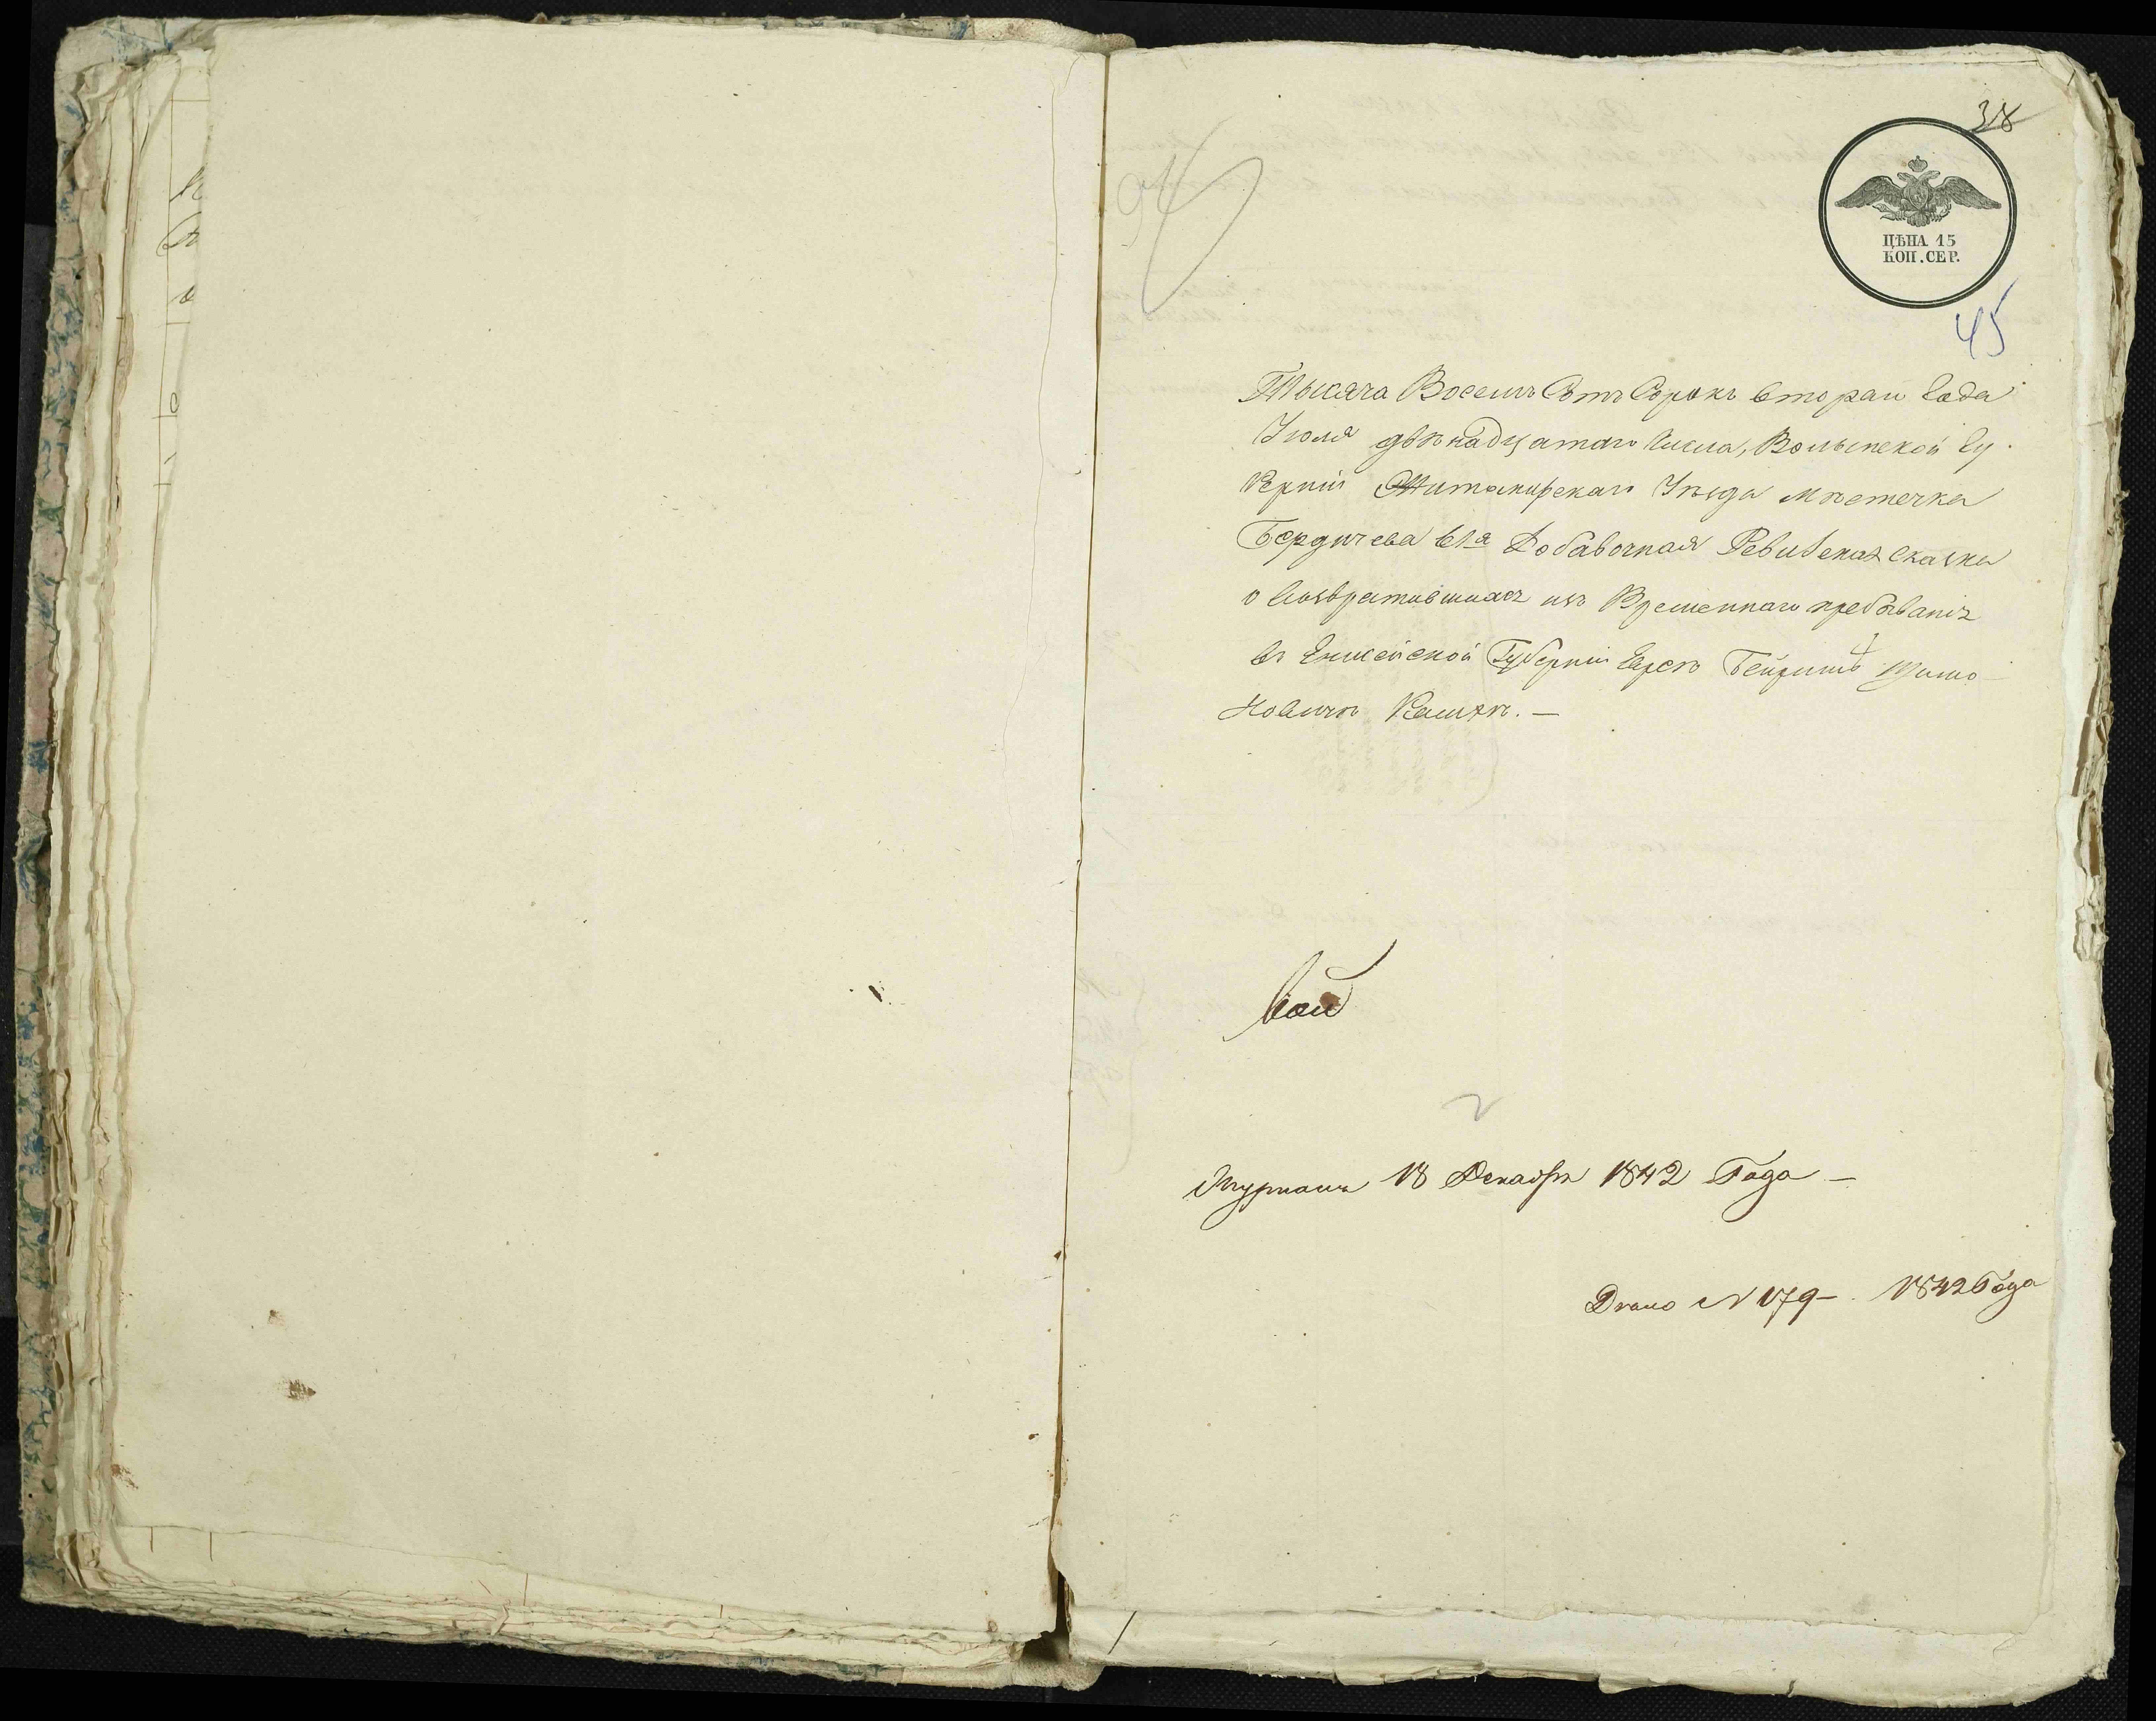 38
ЦѢНА 15
КОП. СЕР.
45
Тысяча Восемь Сотъ Сорокъ втораго Года
Іюля двѣнадцатаго числа, Волынской Гу
берніи Житомирскаго Уѣзда мѣстечка
Бердичева Добавочная Ревизская Сказка
о возвратившихся изъ Временнаго пребыванія
въ Енисейской Губерніи Евреѣ Шимо
новичѣ
18 Декабря 1842 Года —
Дѣло N 179 — 1842 Года